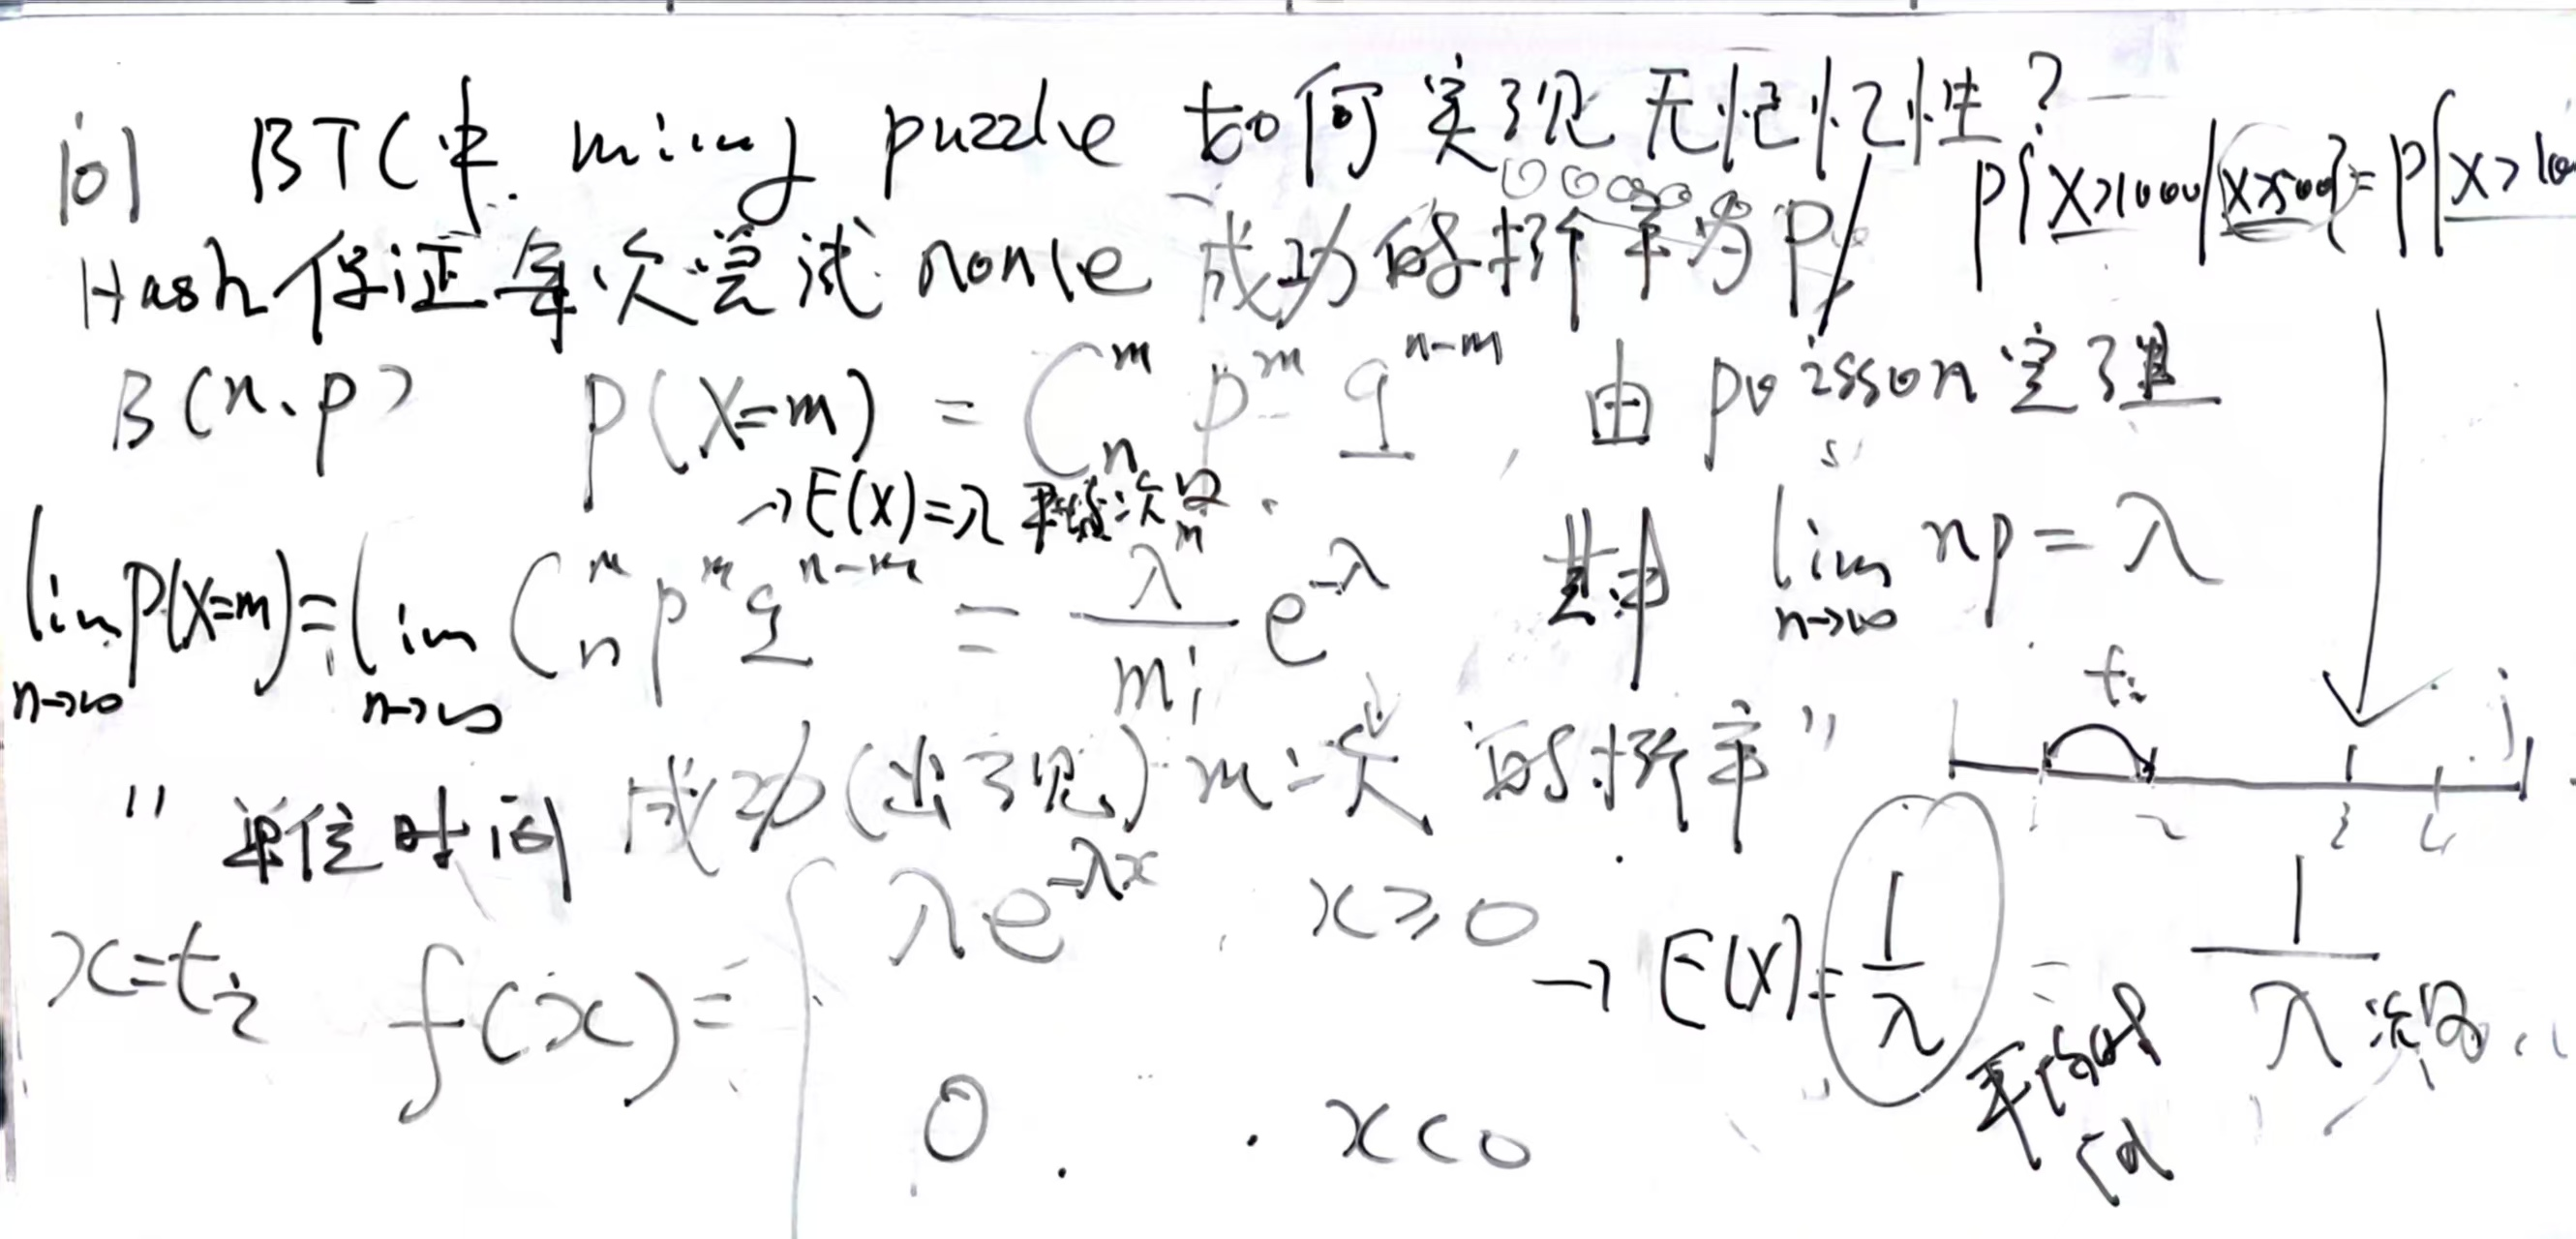 问 BTC中 mining puzzle 如何实现无记忆性?
P{X>1000|X>500}=P{X>
Hash保证每次尝试 nonce 成功的概率为P
B(n、p) P(X=m) = C_n^m p^m q^{n-m} , 由 poisson定理
→E(X)=λ 平均次数
lim_{n→∞} P(X=m) = lim_{n→∞} C_n^m p^m q^{n-m} = λ^m / m! e^{-λ} 其中 lim_{n→∞} np = λ
t_i
" 单位时间 成功(出现) m次 的概率"
1 2 3 4
x=t_i f(x)= { λe^{-λx} , x≥0
→ E(X)= 1/λ = 1/λ 次数
平均时间
0 . x<0